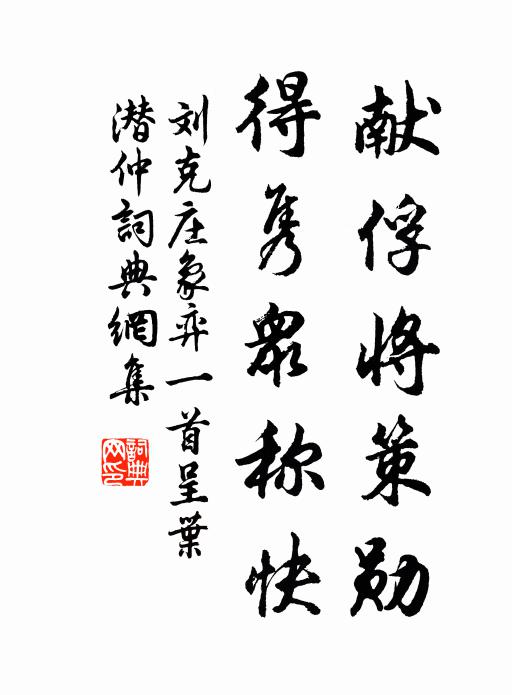 献俘将策勋
得隽众称快
刘克庄象弈一首呈葉
潜仲詞典網集
詞典網印